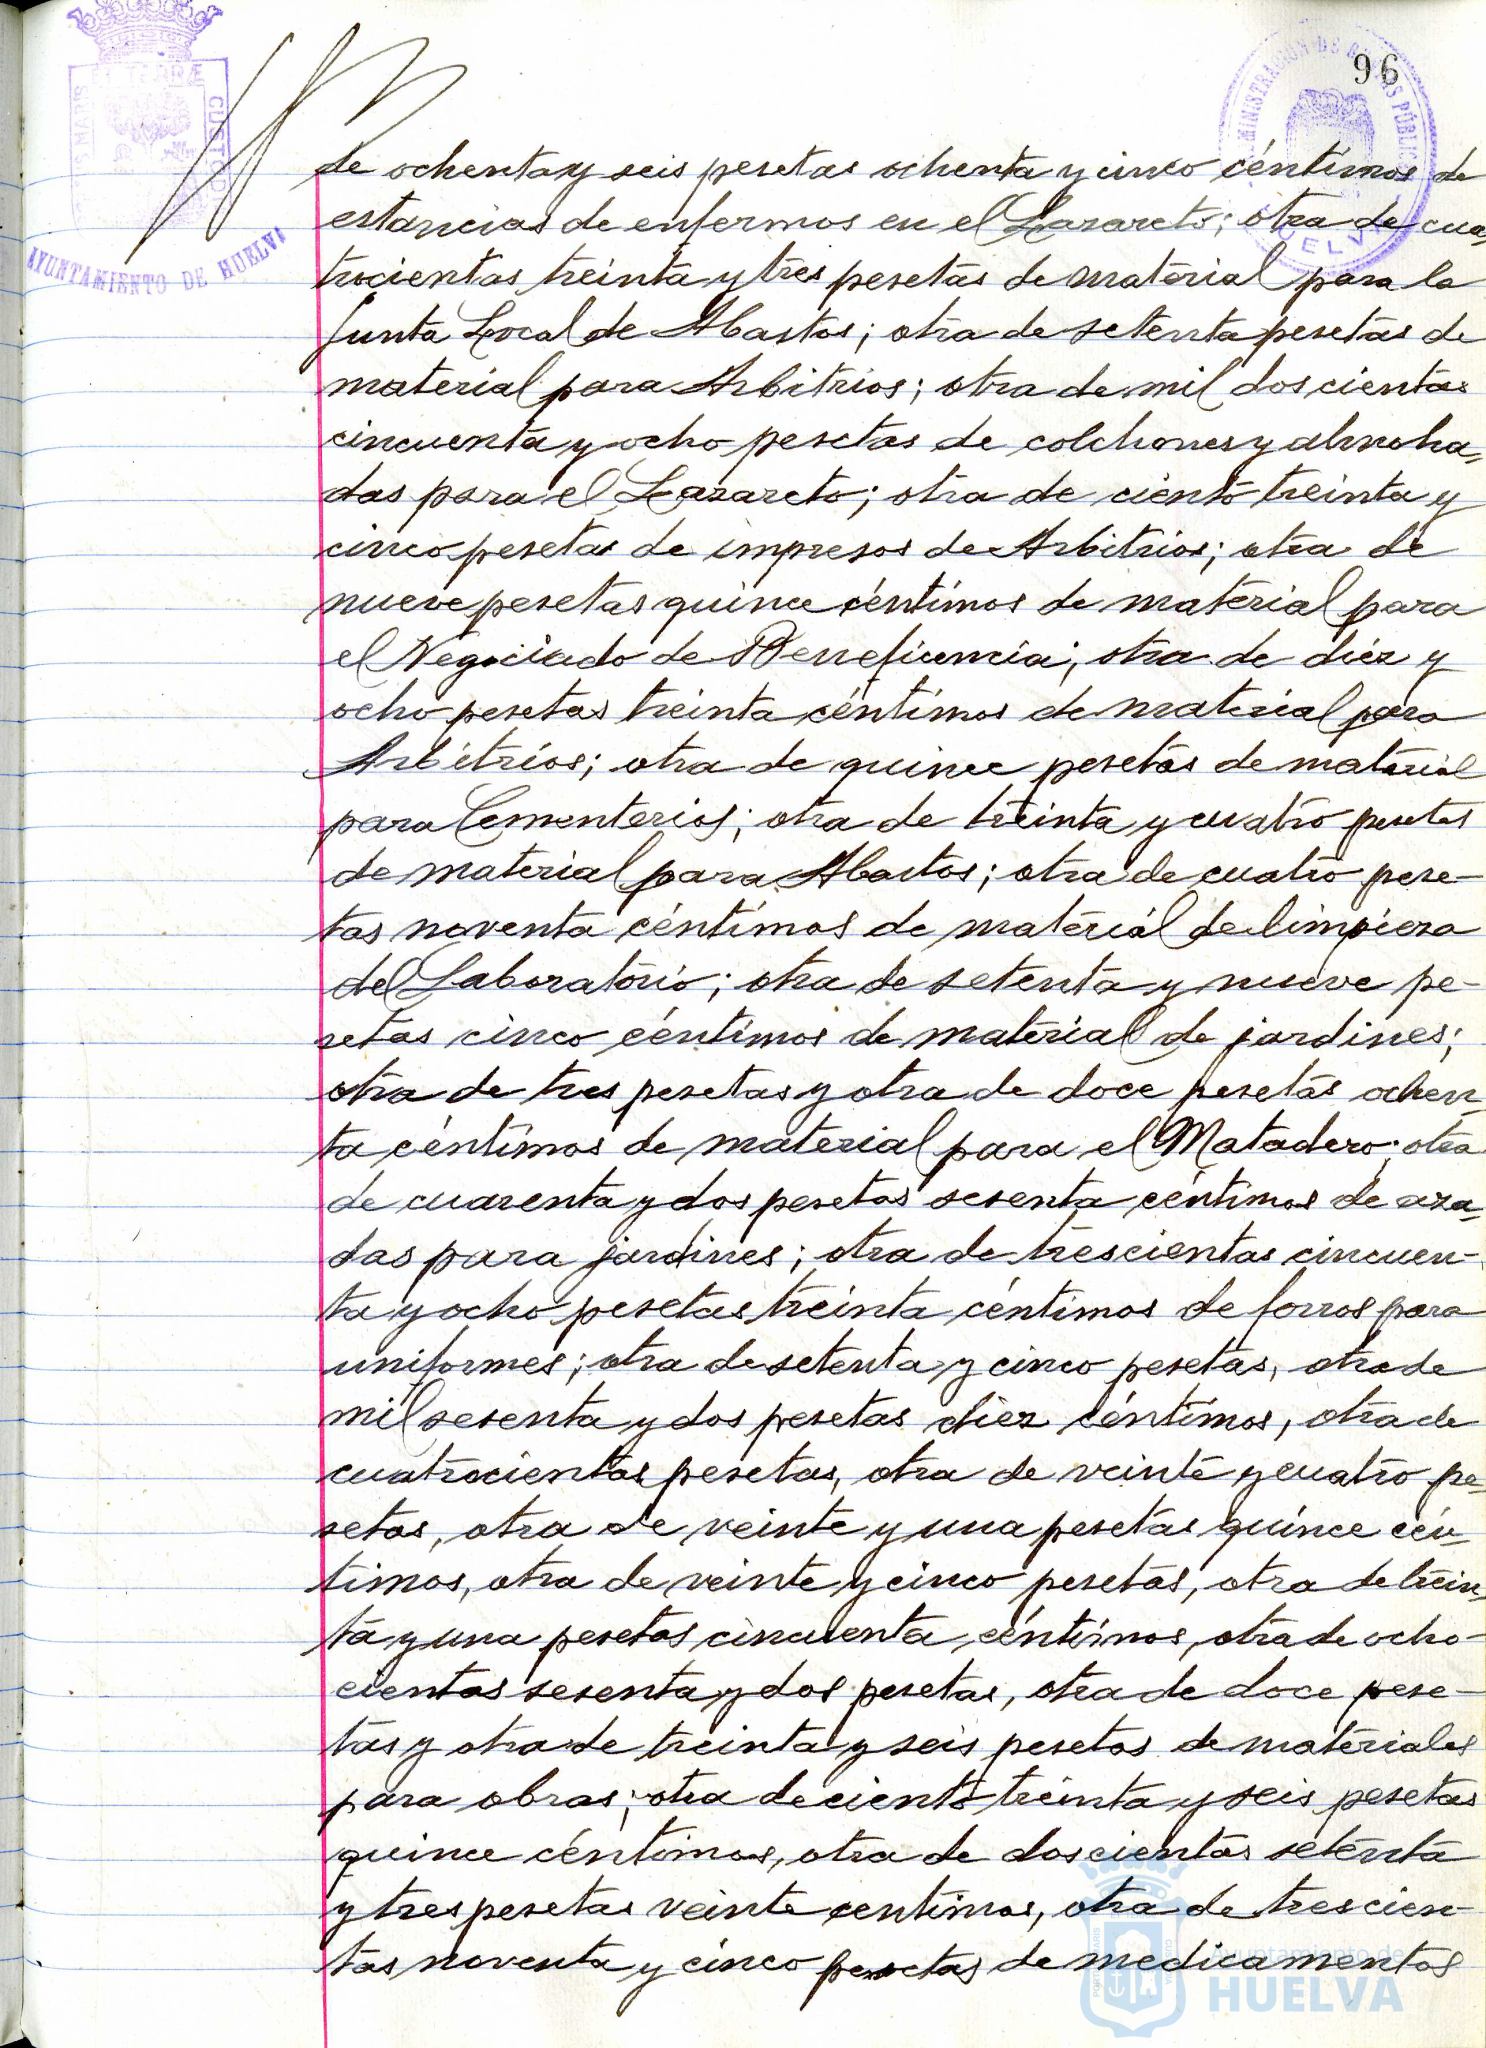 96
TERRÆ
S MARIS
CUSTOD
AYUNTAMIENTO DE HUELVA
MINISTRACION DE RENTAS PÚBLICAS
HUELVA
de ochenta y seis pesetas ochenta y cinco céntimos de
estancias de enfermos en el Lazareto; otra de cua,
trocientas treinta y tres pesetas de material para la
Junta Local de Abastos; otra de setenta pesetas de
material para Arbitrios; otra de mil doscientas
cincuenta y ocho pesetas de colchones y almoha,
das para el Lazareto; otra de ciento treinta y
cinco pesetas de impresos de Arbitrios; otra de
nueve pesetas quince céntimos de material para
el Negociado de Beneficencia; otra de diez y
ocho pesetas treinta céntimos de material para
Arbitrios; otra de quince pesetas de material
para Cementerios; otra de treinta y cuatro pesetas
de material para Abastos; otra de cuatro pese-
tas noventa céntimos de material de limpieza
del Laboratorio; otra de setenta y nueve pe-
setas cinco céntimos de material de jardines;
otra de tres pesetas y otra de doce pesetas ochen,
ta céntimos de material para el Matadero; otra
de cuarenta y dos pesetas sesenta céntimos de aza,
das para jardines; otra de trescientas cincuen-
ta y ocho pesetas treinta céntimos de forros para
uniformes; otra de setenta y cinco pesetas, otra de
mil sesenta y dos pesetas diez céntimos, otra de
cuatrocientas pesetas, otra de veinte y cuatro pe,
setas, otra de veinte y una pesetas quince cén,
timos, otra de veinte y cinco pesetas, otra de trein,
ta y una pesetas cincuenta céntimos, otra de ocho-
cientas sesenta y dos pesetas, otra de doce pese-
tas y otra de treinta y seis pesetas de materiales
para obras; otra de ciento treinta y seis pesetas
quince céntimos, otra de doscientas setenta
y tres pesetas veinte centimos, otra de trescien-
tas noventa y cinco pesetas de medicamentos
Ayuntamiento de
HUELVA